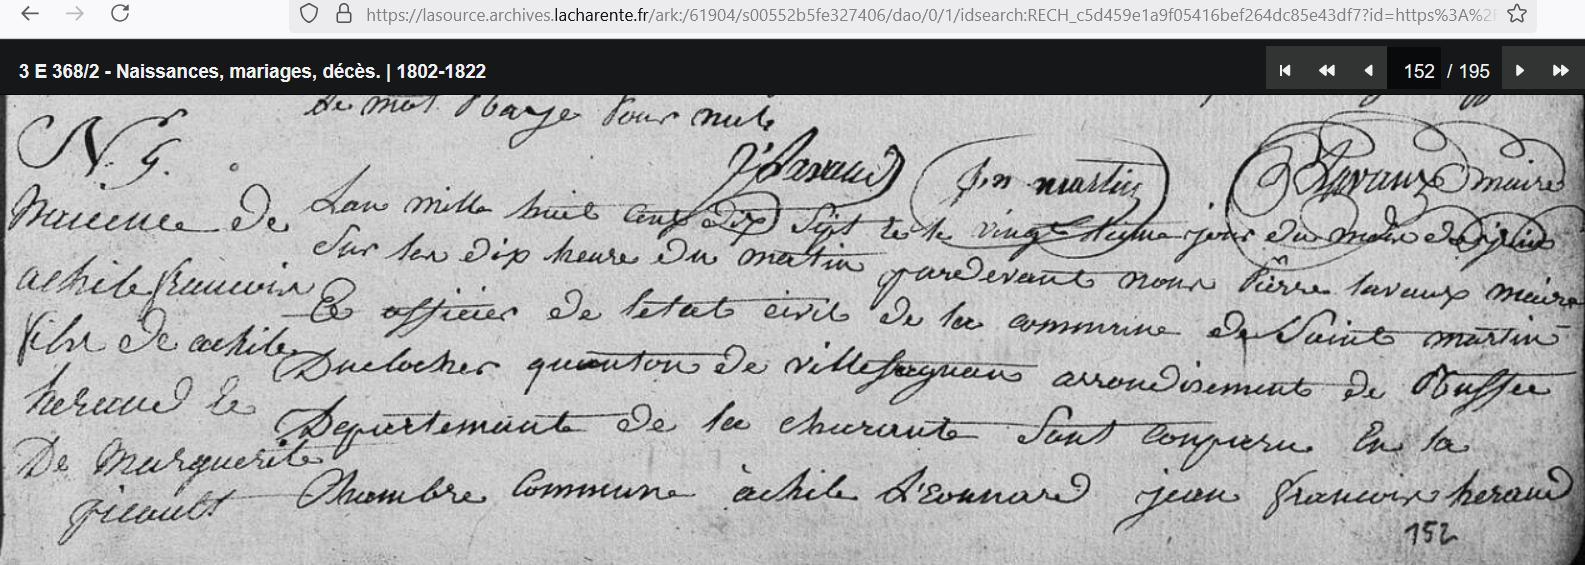 https://lasource.archives.lacharente.fr/ark:/61904/s00552b5fe327406/dao/0/1/idsearch:RECH_c5d459e1a9f05416bef264dc85e43df7?id=https%3A%2F
3 E 368/2 - Naissances, mariages, décès. | 1802-1822
152 / 195
De mot Raye pour nule
Lavaud
martin
P Lavaux maire
N 5.
Naicence de
achile francoix
fils de achile
heraud Et
De Marguerite
picault
Lan mille huit cent dix Sept le vingt jour du mois de juin
Sur les dix heure du matin pardevant nous Pierre lavaux maire
Et officier de letat civil de la commune de Saint martin
Duclocher quanton de villefagnan arrondisement de Ruffec
Departemente de la charante Sont conparu En la
Chambre commune àchile L'eonnard jean francoix heraud
152